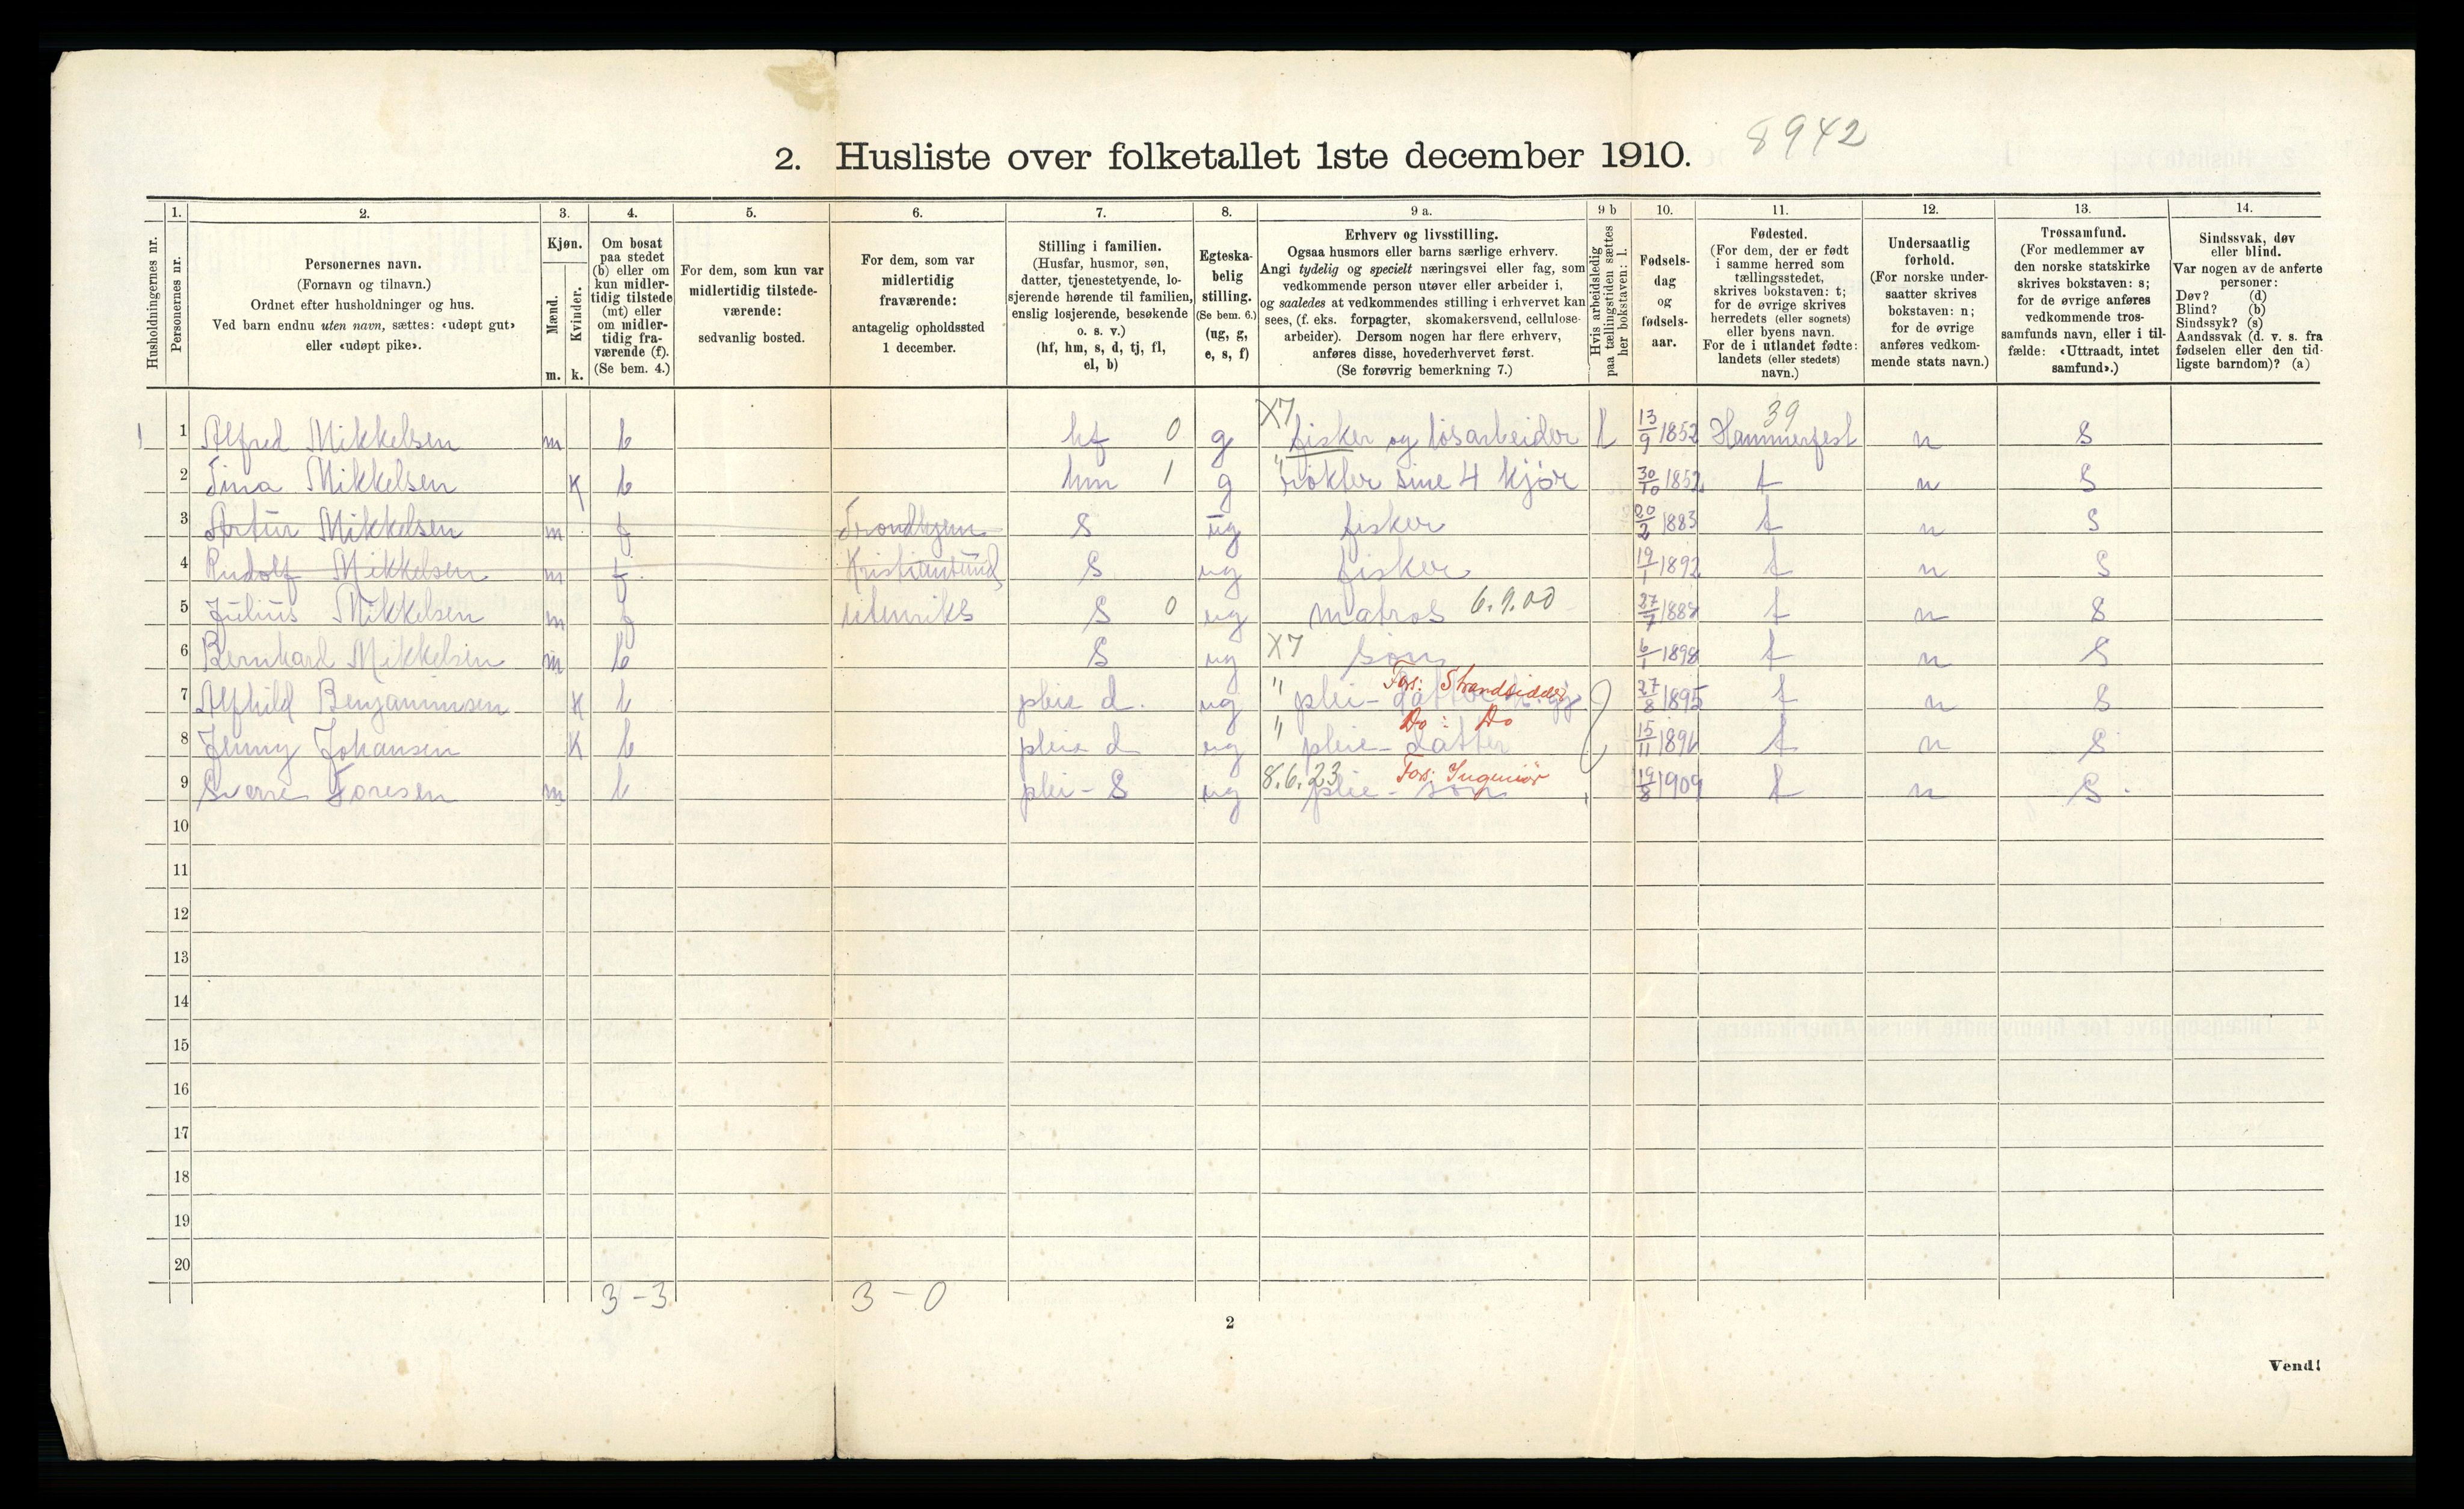 8942
2. Husliste over folketallet 1ste december 1910.
Husholdningernes nr.
1.
Personernes nr.
2.
Personernes navn.
(Fornavn og tilnavn.)
Ordnet efter husholdninger og hus.
Ved barn endnu uten navn, sættes: «udøpt gut»
eller «udøpt pike».
3.
Kjøn.
Mænd.
Kvinder.
m. k.
4.
Om bosat
paa stedet
(b) eller om
kun midler-
tidig tilstede
(mt) eller
om midler-
tidig fra-
værende (f).
(Se bem. 4.)
5.
For dem, som kun var
midlertidig tilstede-
værende:
sedvanlig bosted.
6.
For dem, som var
midlertidig
fraværende:
antagelig opholdssted
1 december.
7.
Stilling i familien.
(Husfar, husmor, søn,
datter, tjenestetyende, lo-
sjerende hørende til familien,
enslig losjerende, besøkende
o. s. v.)
(hf, hm, s, d, tj, fl,
el, b)
8.
Egteska-
belig
stilling.
(Se bem. 6.)
(ug, g,
e, s, f)
9 a.
Erhverv og livsstilling.
Ogsaa husmors eller barns særlige erhverv.
Angi tydelig og specielt næringsvei eller fag, som
vedkommende person utøver eller arbeider i,
og saaledes at vedkommendes stilling i erhvervet kan
sees, (f. eks. forpagter, skomakersvend, cellulose-
arbeider). Dersom nogen har flere erhverv,
anføres disse, hovederhvervet først.
(Se forøvrig bemerkning 7.)
9 b
Hvis arbeidsledig
paa tællingstiden sættes
her bokstaven: l.
10.
Fødsels-
dag
og
fødsels-
aar.
11.
Fødested.
(For dem, der er født
i samme herred som
tællingsstedet,
skrives bokstaven: t;
for de øvrige skrives
herredets (eller sognets)
eller byens navn.
For de i utlandet fødte:
landets (eller stedets)
navn.)
12.
Undersaatlig
forhold.
(For norske under-
saatter skrives
bokstaven: n;
for de øvrige
anføres vedkom-
mende stats navn.)
13.
Trossamfund.
(For medlemmer av
den norske statskirke
skrives bokstaven: s;
for de øvrige anføres
vedkommende tros-
samfunds navn, eller i til-
fælde: «Uttraadt, intet
samfund».)
14.
Sindssvak, døv
eller blind.
Var nogen av de anførte
personer:
Døv? (d)
Blind? (b)
Sindssyk? (s)
Aandssvak (d. v. s. fra
fødselen eller den tid-
ligste barndom)? (a)
X7 39
1 1 Alfred Mikkelsen m b hf 0 g fisker og løsarbeider l 13/9 1852 Hammerfest n S
2 Tina Mikkelsen K b hm 1 g " røkter sine 4 kjør 30/10 1852 t n S
3 Artur Mikkelsen m f Trondhjem S ug fisker 20/2 1883 t n S
4 Rudolf Mikkelsen m f Kristiansund S ug fisker 19/1 1892 t n S
5 Julius Mikkelsen m f utenriks S 0 ug matros 6.9.00 27/7 t n S
6 Bernhard Mikkelsen m b S ug X7 søn 6/1 1898 t n S
Fors: Strandsidder
7 Alfhild Benjaminsen K b pleie d. ug " plei-datter 27/8 1895 t n S
Do: Do
8 Jenny Johansen K b pleie d ug " pleie-datter 15/11 t n S
8.6.23 Fors: Ingeniør
9 Sverre Toresen m b plei-S ug plie-søn 19/8 1909 t n S.
10
11
12
13
14
15
16
17
18
19
20
3-3 3-0
2
Vend!